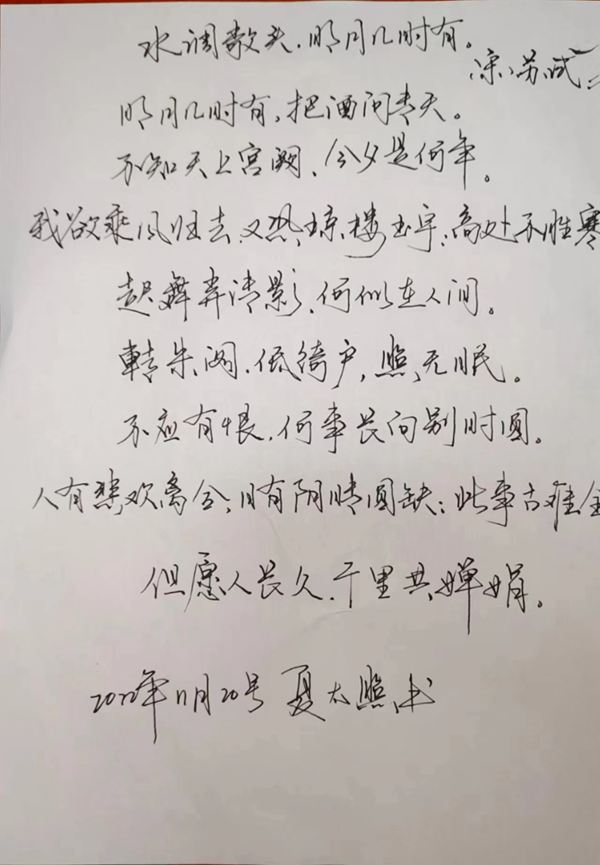 水调歌头.明月几时有。
宋.苏轼.
明月几时有,把酒问青天。
不知天上宫阙、今夕是何年。
我欲乘风归去,又恐琼楼玉宇,高处不胜寒
起舞弄清影,何似在人间。
转朱阁.低绮户,照无眠。
不应有恨,何事长向别时圆。
人有悲欢离合,月有阴晴圆缺;此事古难全
但愿人长久.千里共婵娟。
2022年11月20号 夏太照书